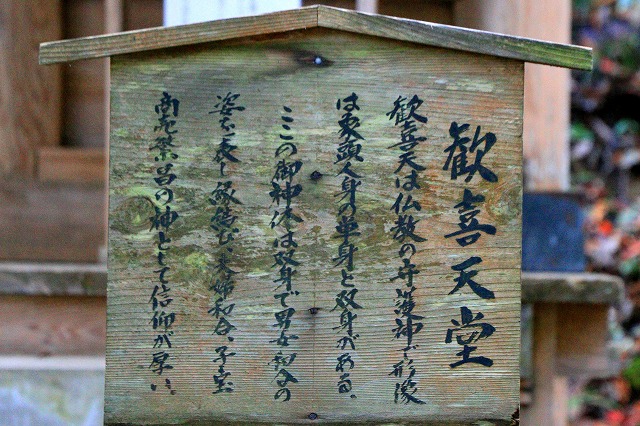 歓喜天堂
歓喜天は仏教の守護神で形像
は象頭人身の単身と双身がある、
ここの御神体は双身で男女和合の
姿を表し縁結び、夫婦和合、子宝
商売繁昌の神として信仰が厚い、